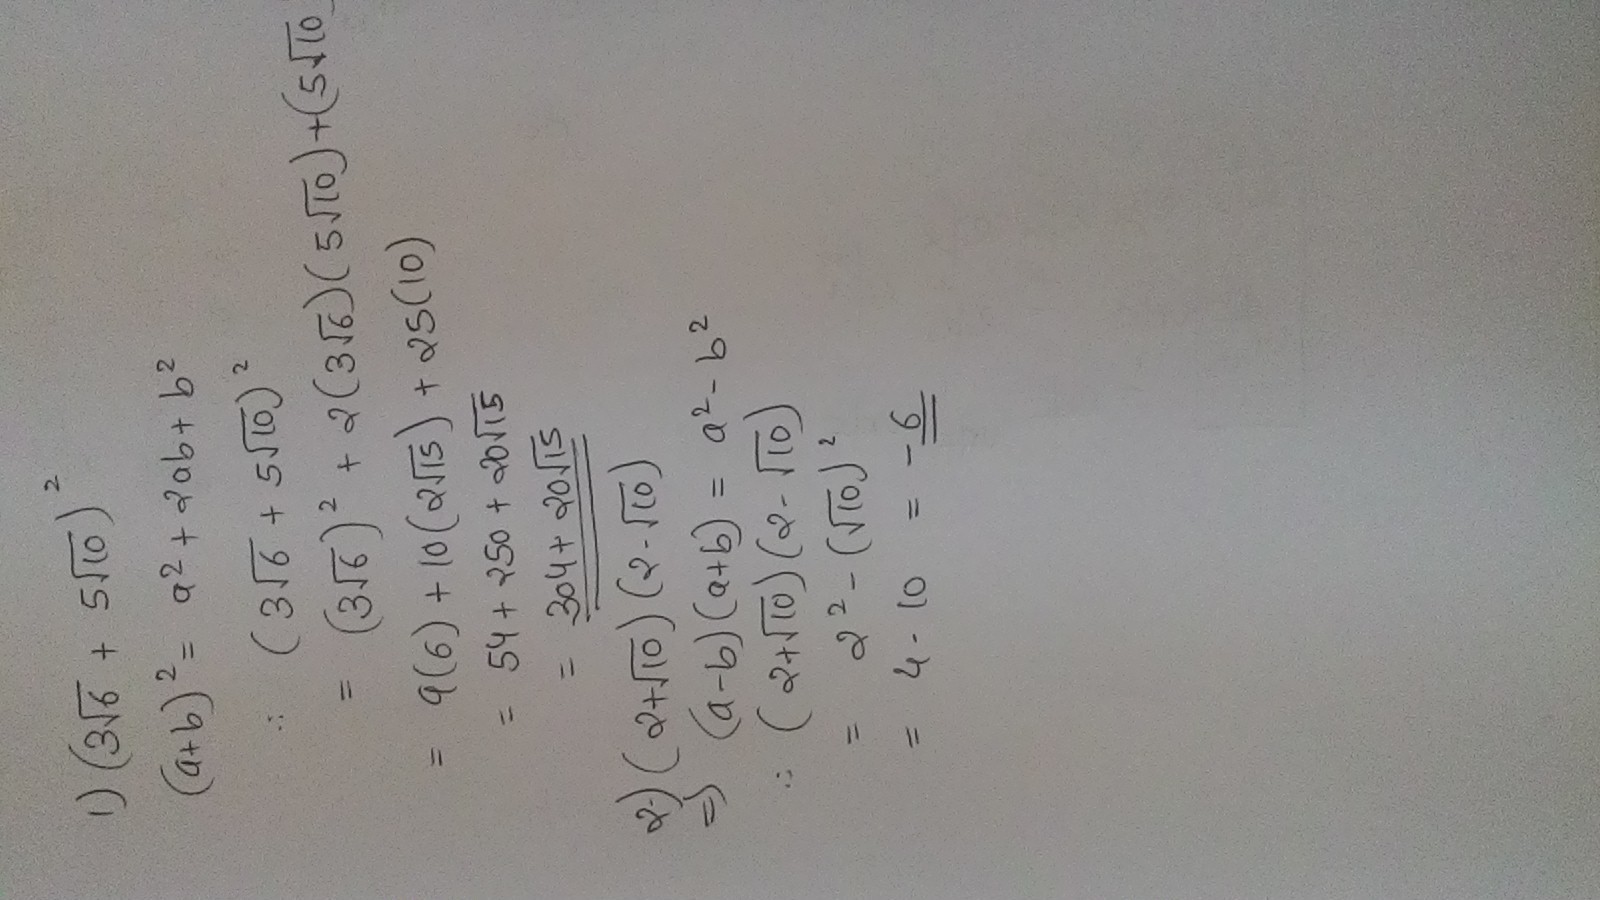 1) (3√6 + 5√10)²
(a+b)² = a² + 2ab + b²
∴ (3√6 + 5√10)²
= (3√6)² + 2(3√6)(5√10)+(5√10
= 9(6) + 10(2√15) + 25(10)
= 54 + 250 + 20√15
= 304 + 20√15
2) (2+√10)(2-√10)
⇒ (a-b)(a+b) = a² - b²
∴ (2+√10)(2-√10)
= 2² - (√10)²
= 4 - 10 = -6